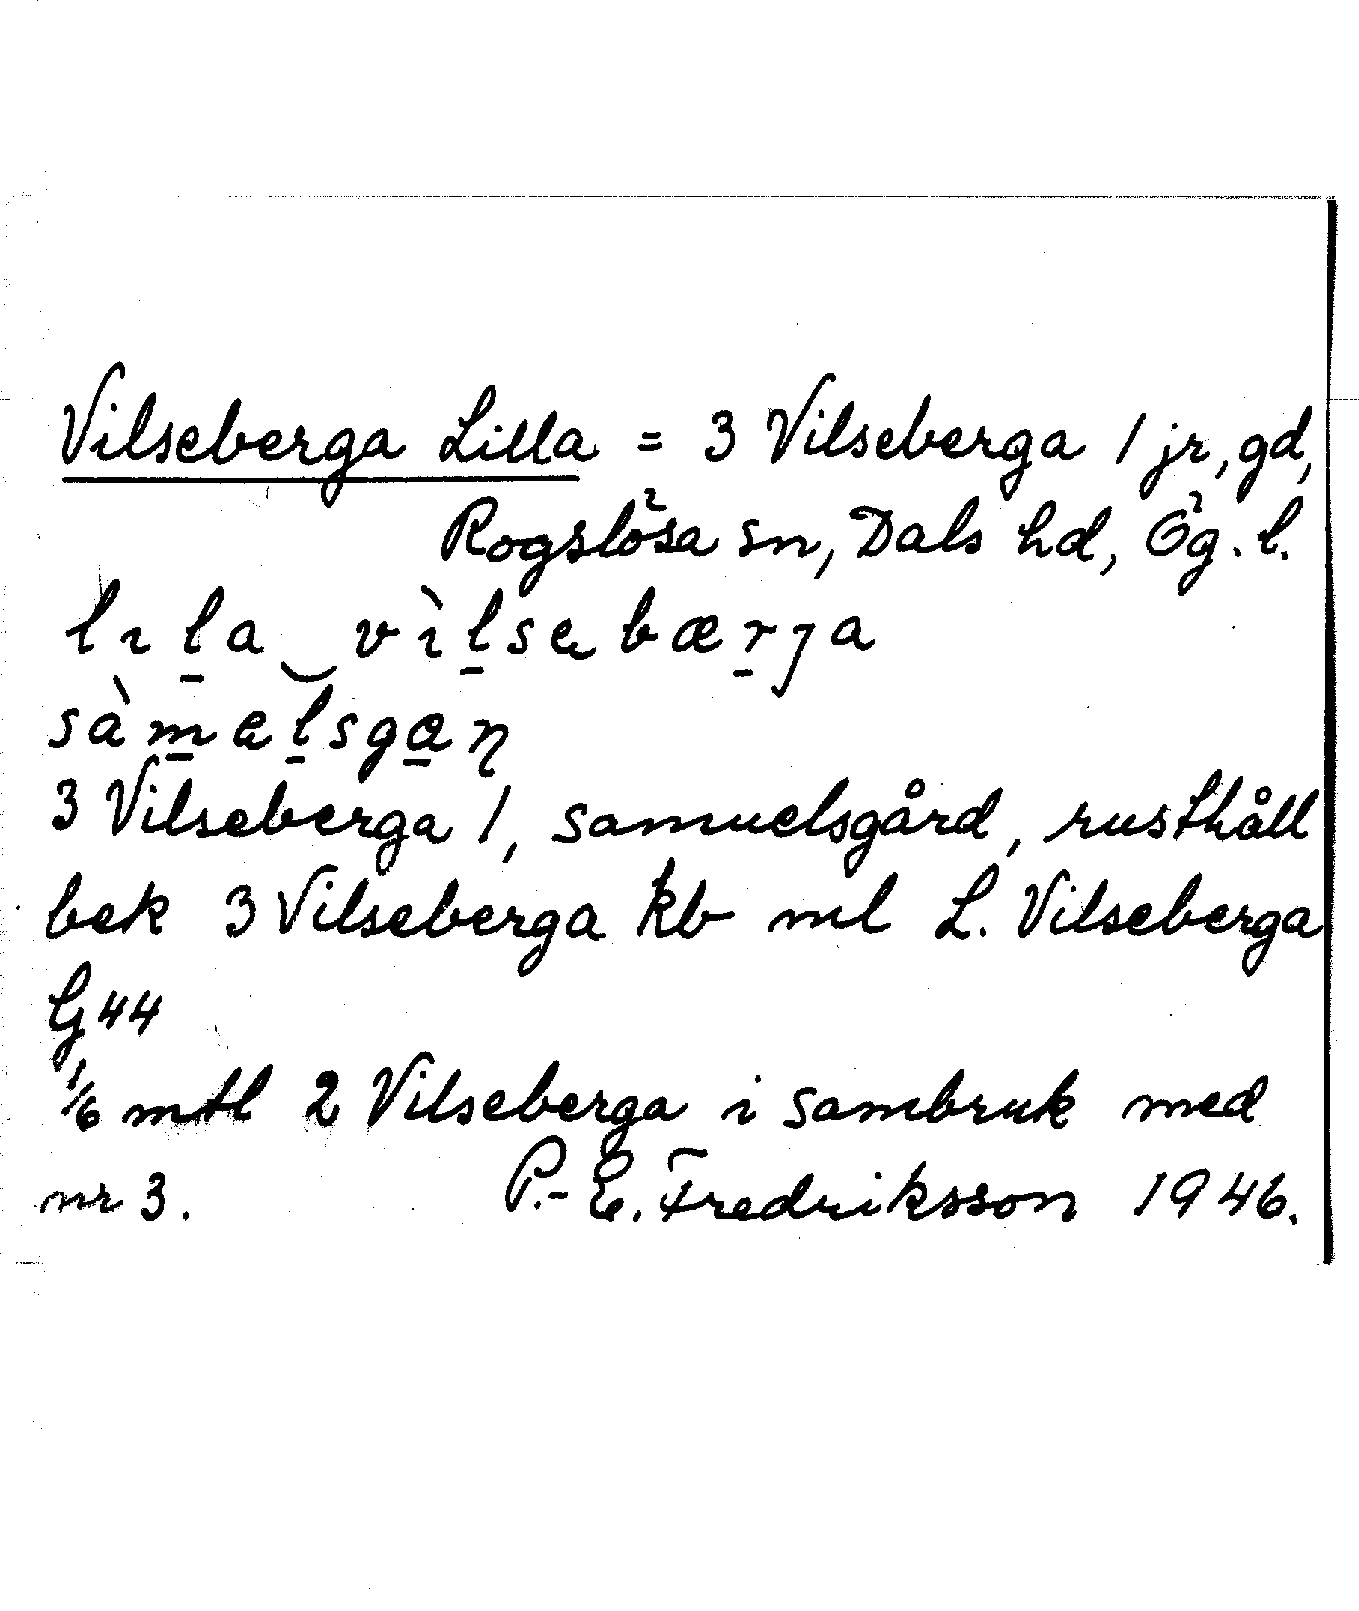 Vilseberga Lilla = 3 Vilseberga 1 jr, gd,
Rogslösa sn, Dals hd, Ög. l.
lıl̠a‿vı̀l̠sebær̠ȷa
sàm̠el̠sga̠ɳ
3 Vilseberga 1, samuelsgård, rusthåll
bek 3 Vilseberga kb ml L. Vilseberga
G44
1/6 mtl 2 Vilseberga i sambruk med
nr 3. P.-E. Fredriksson 1946.